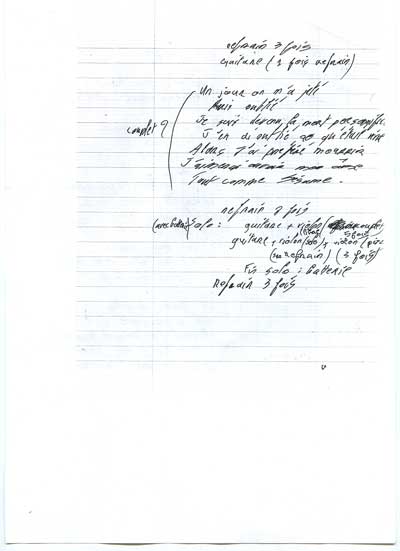 refrain 3 fois
guitare (1 fois refrain)
Un jour on m'a jeté
Puis oublié
Je suis devenu la mort personnifiée
J'en ai oublié ce qu'était
Alors j'ai préféré mourrir
couplet 9
J'aimerai
Tout comme
refrain 2 fois
(avec batterie) Solo : guitare + violon
guitare + violon (solo) + violon
(sur refrain) (3 fois)
Fin solo : batterie
Refrain 3 fois